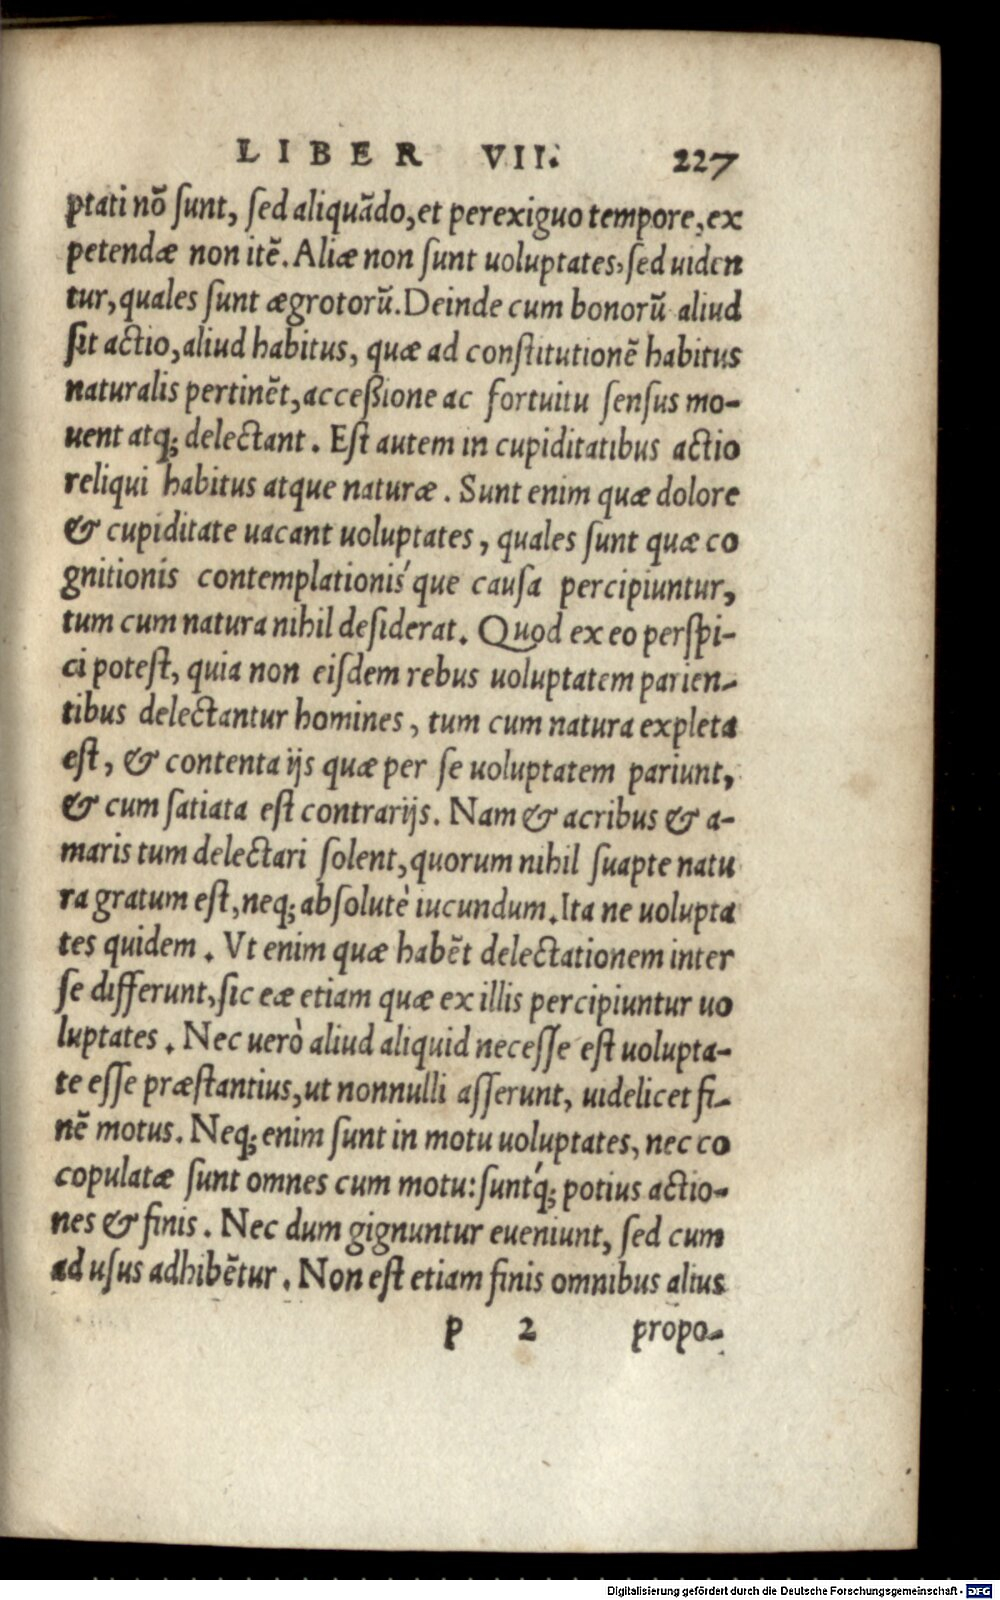 LIBER VII. 227
ptati nō ſunt, ſed aliquādo, et perexiguo tempore, ex
petendæ non itē. Aliæ non ſunt uoluptates, ſed uiden
tur, quales ſunt ægrotorū. Deinde cum bonorū aliud
ſit actio, aliud habitus, quæ ad conſtitutionē habitus
naturalis pertinēt, acceßione ac fortuitu ſenſus mo-
uent atq; delectant. Eſt autem in cupiditatibus actio
reliqui habitus atque naturæ. Sunt enim quæ dolore
& cupiditate uacant uoluptates, quales ſunt quæ co
gnitionis contemplationis´que cauſa percipiuntur,
tum cum natura nihil deſiderat. Quod ex eo perſpi-
ci poteſt, quia non eiſdem rebus uoluptatem parien-
tibus delectantur homines, tum cum natura expleta
eſt, & contenta ijs quæ per ſe uoluptatem pariunt,
& cum ſatiata eſt contrarijs. Nam & acribus & a-
maris tum delectari ſolent, quorum nihil ſuapte natu
ra gratum eſt, neq; abſolutè iucundum. Ita ne uolupta
tes quidem. Vt enim quæ habēt delectationem inter
ſe differunt, ſic eæ etiam quæ ex illis percipiuntur uo
luptates. Nec uerò aliud aliquid neceſſe eſt uolupta-
te eſſe præſtantius, ut nonnulli aſſerunt, uidelicet fi-
nē motus. Neq; enim ſunt in motu uoluptates, nec co
copulatæ ſunt omnes cum motu: ſunt´q; potius actio-
nes & finis. Nec dum gignuntur eueniunt, ſed cum
ad uſus adhibētur. Non eſt etiam finis omnibus alius
p 2 propo-
Digitalisierung gefördert durch die Deutsche Forschungsgemeinschaft - DFG